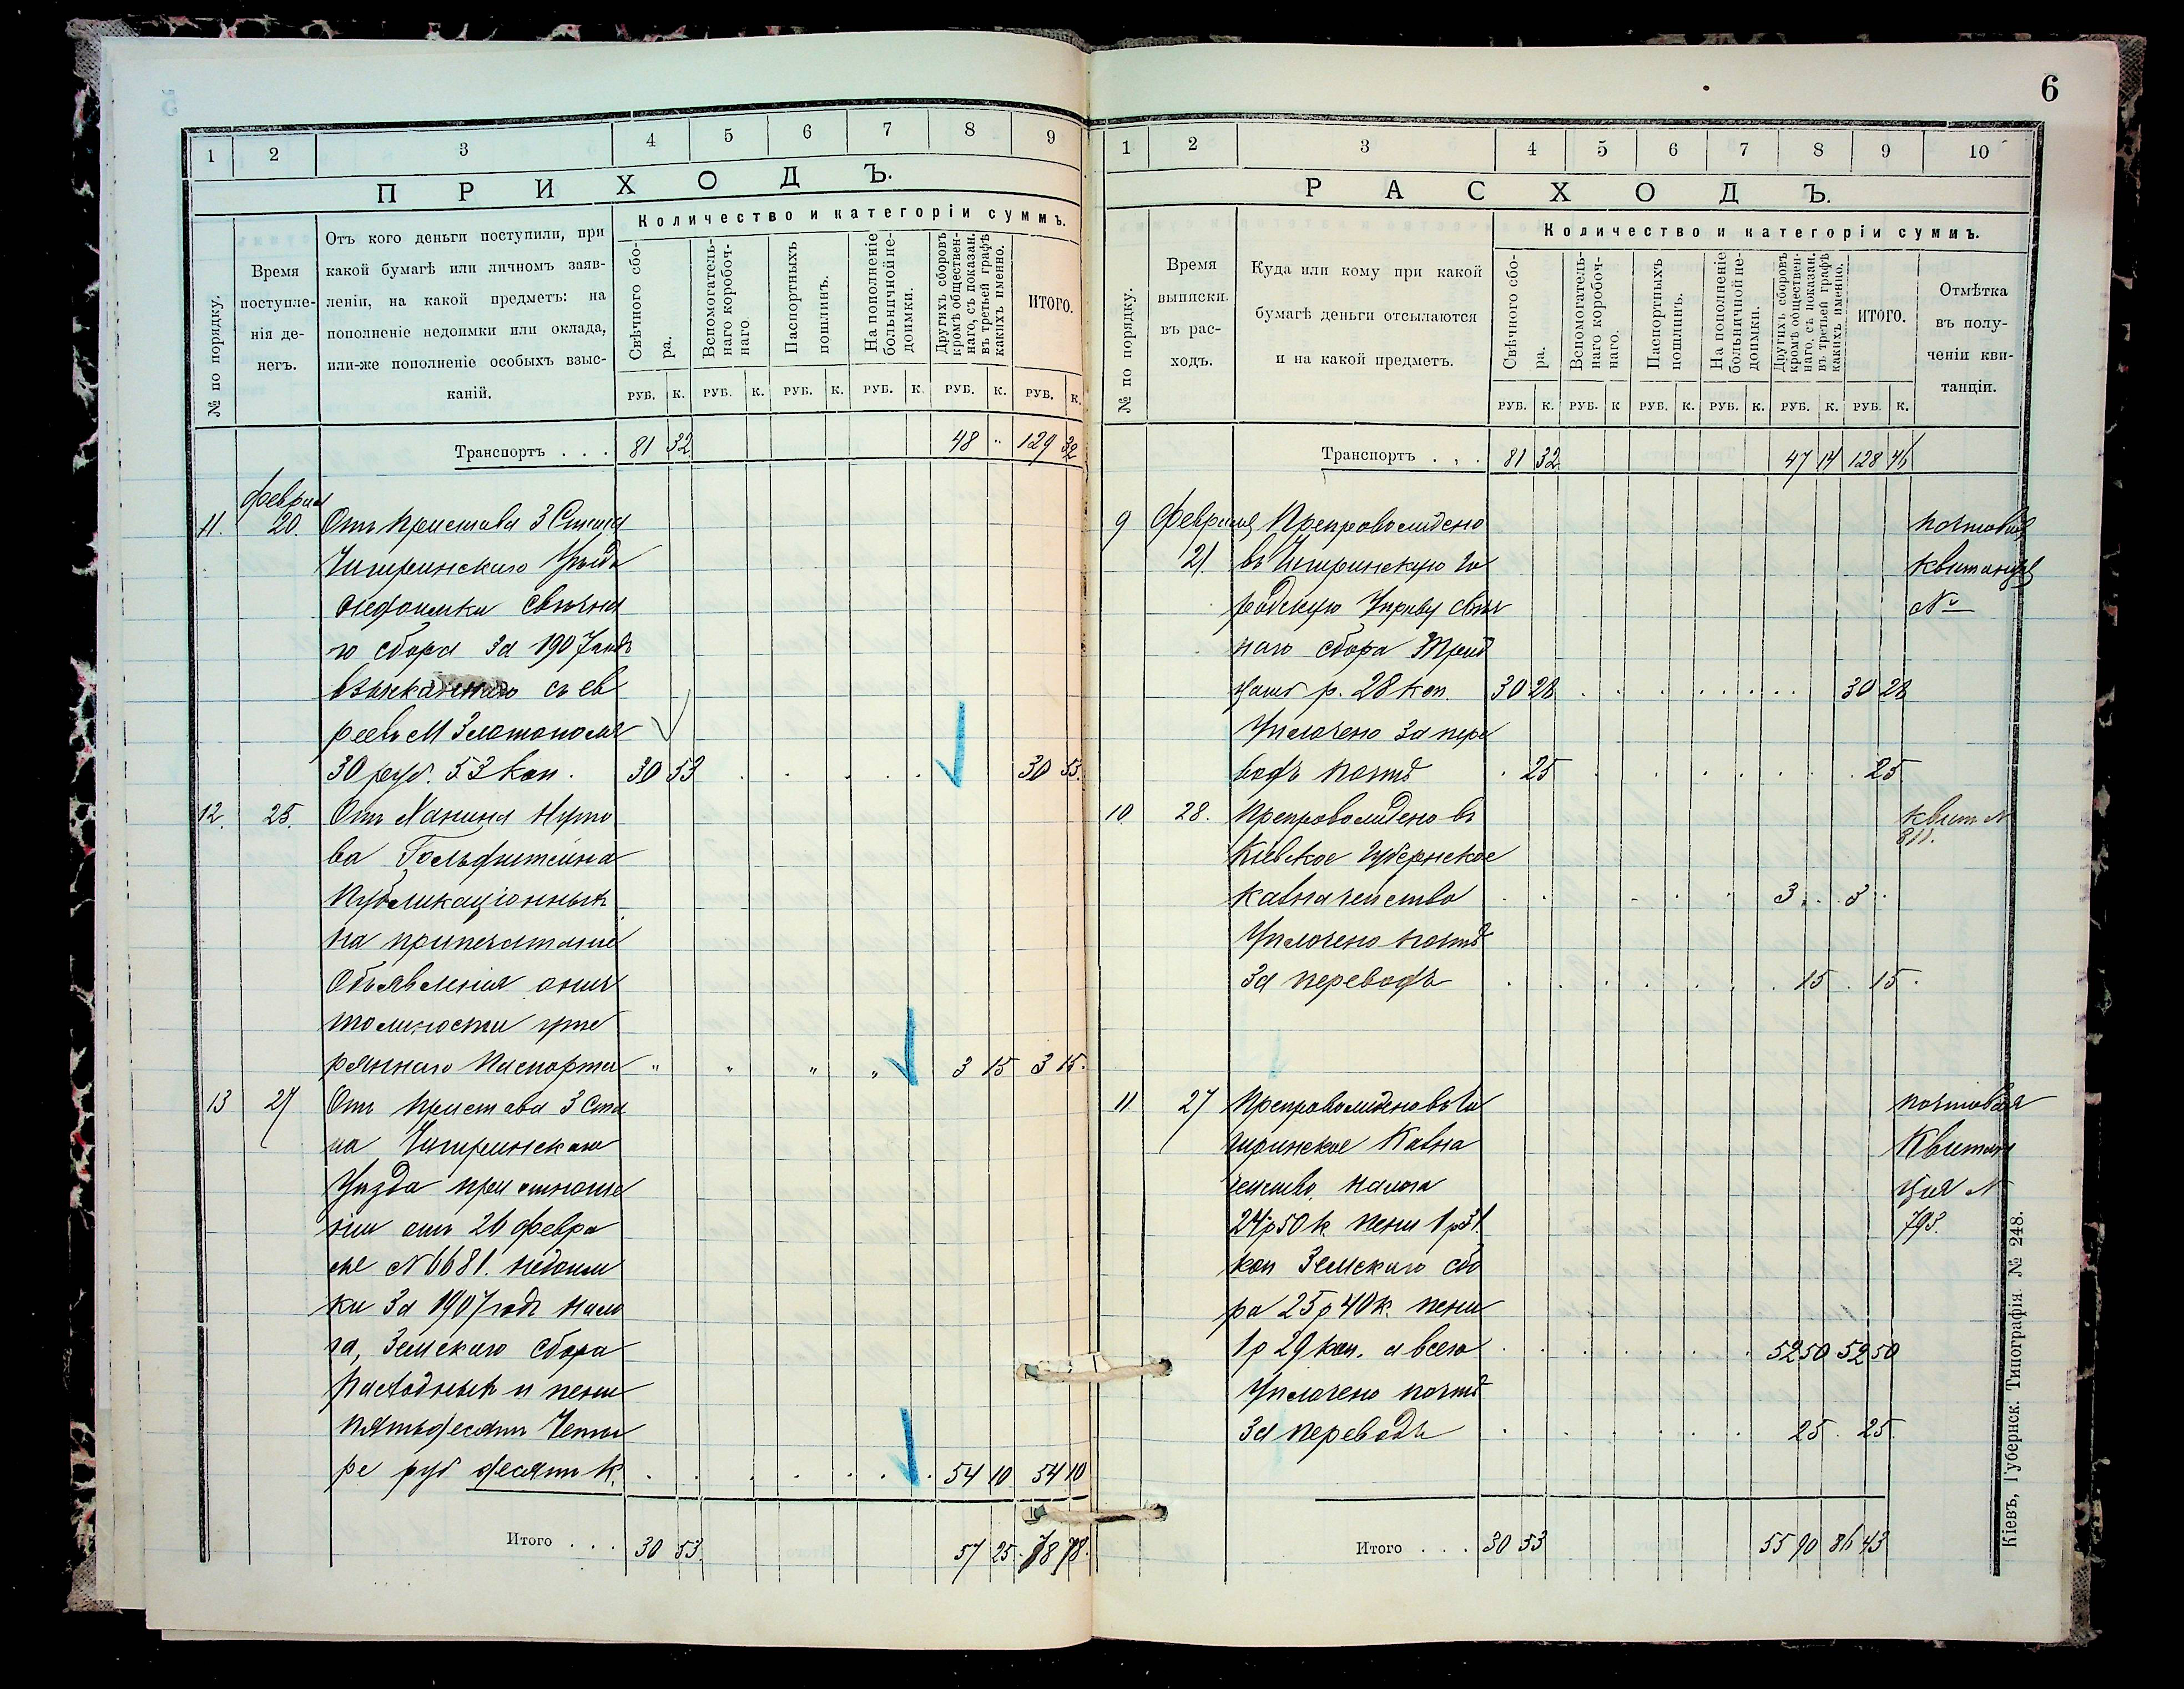 6
1 2 3 4 5 6 7 8 9
ПРИХОДЪ.
№ по порядку.
Время поступле-
нія де-
негъ.
Отъ кого деньги поступили, при
какой бумагѣ или личномъ заяв-
леніи, на какой предметъ: на
пополненіе недоимки или оклада,
или-же пополненіе особыхъ взыс-
каній.
Количество и категоріи суммъ.
Свѣчного сбо-
ра.
Вспомогатель-
наго коробоч-
наго.
Паспортныхъ
пошлинъ.
На пополненіе
больничной не-
доимки.
Другихъ сборовъ
кромѣ обществен-
наго, съ показан.
въ третьей графѣ
какихъ именно.
ИТОГО.
РУБ. К. РУБ. К. РУБ. К. РУБ. К. РУБ. К. РУБ. К.
Транспортъ . . . 81 32 48 " 129 32
Феврал
11. 20. Отъ Пристава 3 Стана
Чигиринскаго Уѣзда
недоимки свѣчна
го сбора за 1907 годъ
взысканнаго съ ев
реевъ М Златополя
30 руб. 53 коп. 30 53 30 53.
12. 25. Отъ
ва Гольдштейна
Публикаціонныхъ
на припечатаніе
Объявленія о ничт
тожности уте
ряннаго Паспорта " " " " 3 15 3 15.
13 27 Отъ Пристава 3 Ста
на Чигиринскаго
Уѣзда при отноше
ніи отъ 26 Февра
ля № 6681. недоим
ки за 1907 годъ нало
га, Земскаго Сбора
Расходныхъ и пени
пятьдесятъ Четы
ре руб десять к. 54 10 54 10
Итого . . . 30 53. 57 25.
1 2 3 4 5 6 7 8 9 10
РАСХОДЪ.
№ по порядку.
Время
выписки.
въ рас-
ходъ.
Куда или кому при какой
бумагѣ деньги отсылаются
и на какой предметъ.
Количество и категоріи суммъ.
Свѣчного сбо-
ра.
Вспомогатель-
наго коробоч-
наго.
Паспортныхъ
пошлинъ.
На пополненіе
больничной не-
доимки.
Другихъ сборовъ
кромѣ обществен-
наго, съ показан.
въ третьей графѣ
какихъ именно.
ИТОГО.
Отмѣтка
въ полу-
ченіи кви-
танціи.
РУБ. К. РУБ. К РУБ. К. РУБ. К. РУБ. К. РУБ. К.
Транспортъ . . . 81 32 47 14 128 46
9 Февраля Препровождено почтовая
21 въ Чигиринскую Го квитанція
родскую Управу свѣч №
наго сбора Трид
цать р. 28 коп. 30 28 30 28
Уплочено за пере
водъ почтѣ 25 25
10. 28. Препровождено въ квит №
Кіевское Губернское 811.
Казначейство 3 3
Уплочено почтѣ
За переводъ 15 15
11 27 Препровождено въ Чи почтовая
гиринское Казна Квитан
чейство налога ція №
24 р 50 к. пени 1 р 31 795.
коп Земскаго сбо
ра 25 р 40 к. пени
1 р 29 коп. а всего 52 50 52 50
Уплочено почтѣ
За переводъ 25 25
Итого . . . 30 53 55 90 86 43
Кіевъ, Губернск. Типографія № 248.